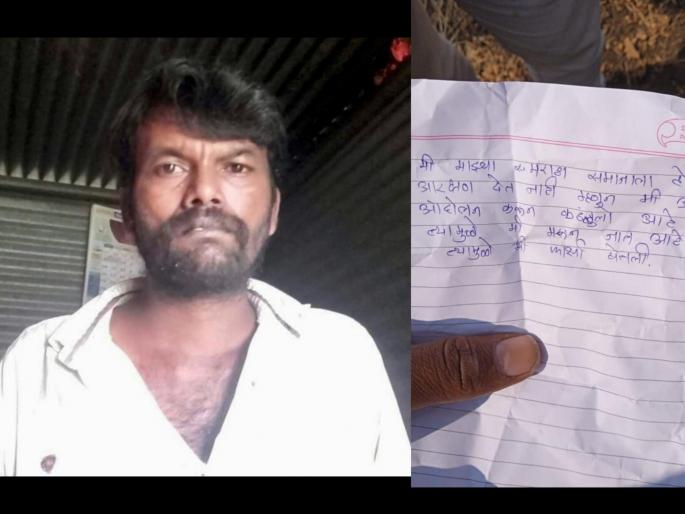 मी माझ्या मराठा समाजाला
आरक्षण देत नाही म्हणून मी
आंदोलन करून कंटाळला आहे
त्यामुळे मी मरून जात आहे
त्यामुळे मी फाशी घेतली.